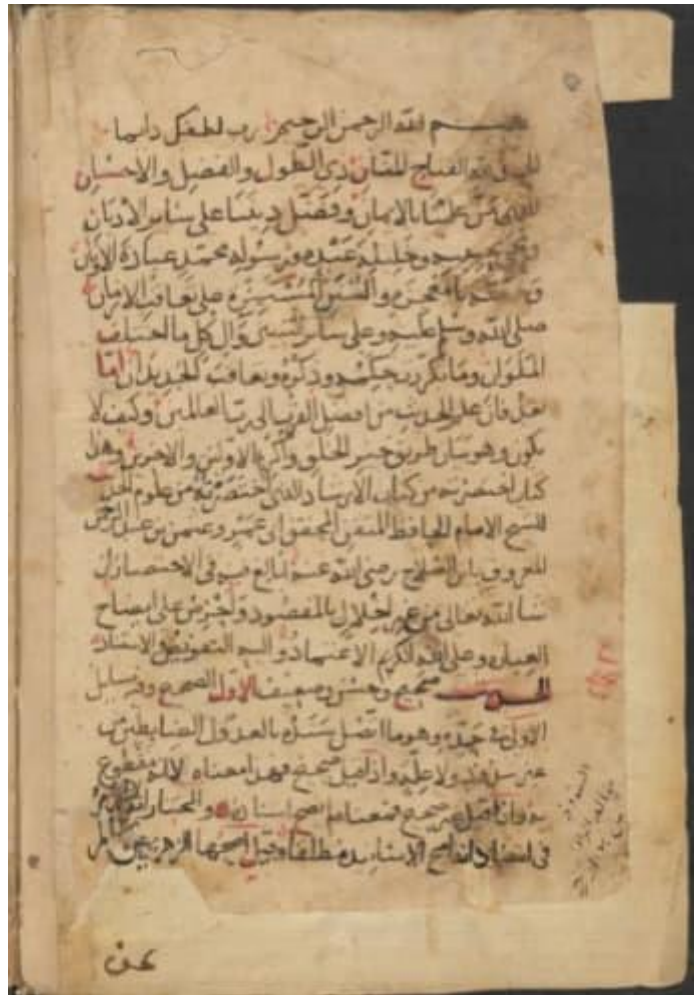 بسم الله الرحمن الرحيم رب لطفك دائما
الحمد لله الفتاح المنان ذي الطول والفضل والاحسان
الذي من علينا بالايمان وفضل ديننا على سائر الاديان
ومحى بحبيبه وخليله عبده ورسوله محمد عبادة الاوثان
وخصه بالمعجزة والسنن المستمرة على تعاقب الازمان
صلى الله وسلم عليه وعلى سائر النبيين وآل كل ما اختلف
الملوان وما تكررت حكمه وذكره وتعاقب الجديدان اما
بعد فان علم الحديث من افضل القرب الى رب العالمين وكيف لا
يكون وهو بيان طريق خير الخلق واكرم الاولين والاخرين وهذا
كتاب اختصرته من كتاب الارشاد الذي اختصرته من علوم الحديث
للشيخ الامام الحافظ المتقن المحقق ابي عمرو عثمن بن عبد الرحمن
المعروف بابن الصلاح رضي الله عنه ابالغ فيه في الاختصار ان
شا الله تعالى من غير اخلال بالمقصود واحرص على ايضاح
العبارة وعلى الله الكريم الاعتماد واليه التفويض والاستناد
الحديث صحيح وحسن وضعيف الاول الصحيح وفيه مسائل
الاولى في حده وهو ما اتصل سنده بالعدول الضابطين من
غير شذوذ ولا علة واذا قيل صحيح فهذا معناه لا انه مقطوع
به واذا قيل غير صحيح فمعناه لم يصح اسناده والمختار انه لا يجزم
في اسناد انه اصح الاسانيد مطلقا وقيل اصحها الزهري عن سالم
عن